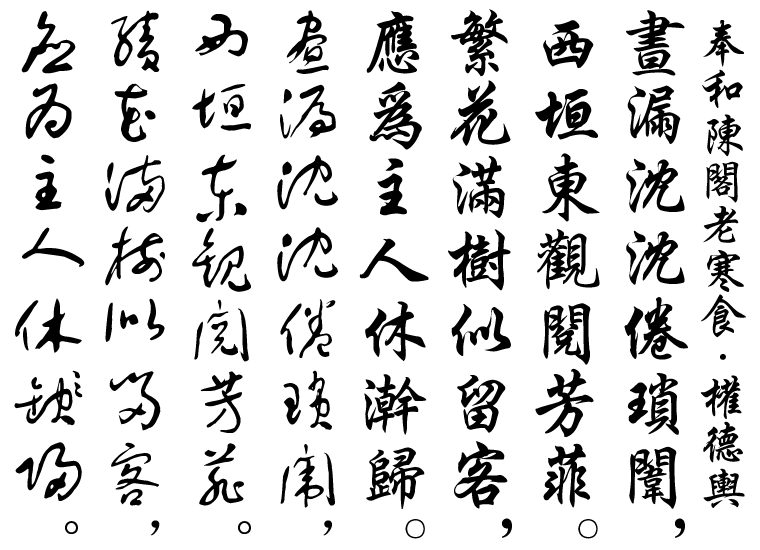 奉和陳閣老寒食・權德輿
晝漏沈沈倦瑣闈，
西垣東觀閱芳菲。
繁花滿樹似留客，
應爲主人休澣歸。
晝漏沈沈倦瑣闈，
西垣東觀閱芳菲。
繁花滿樹似留客，
應爲主人休澣歸。